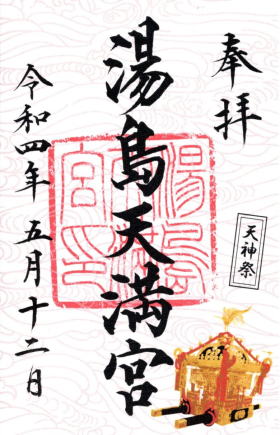 奉拝
天神祭
湯島天満宮
湯島
宮印
令和四年 五月十二日